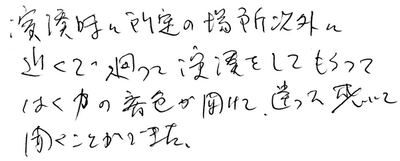 演湊時に所定の場所以外に
近くで廻って演湊をしてもらって
はく力の音色が聞けて、違った感じに
聞くことができた。